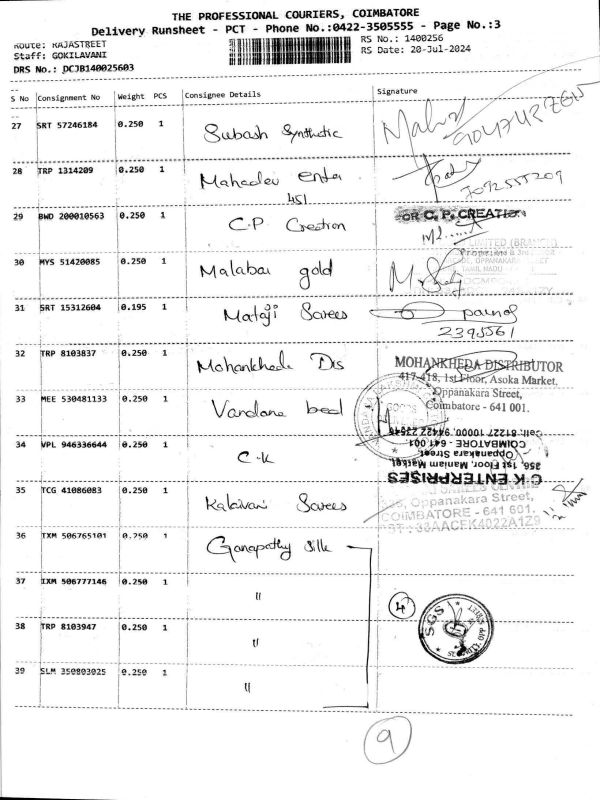 THE PROFESSIONAL COURIERS, COIMBATORE
Delivery Runsheet - PCT - Phone No.:0422-3505555 - Page No.:3
Route: RAJASTREET RS No.: 1400256
Staff: GOKILAVANI RS Date: 20-Jul-2024
DRS No.: DCJB140025603
S No Consignment No Weight PCS Consignee Details Signature
27 SRT 57246184 0.250 1 Subash Synthetic
28 TRP 1314209 0.250 1 Mahadev enta
451 7092555209
29 BWD 200010563 0.250 1 C.P Creation FOR C. P. CREATION
30 MYS 51420085 0.250 1 Malabar gold
31 SRT 15312604 0.195 1 Mataji Sarees
2395561
32 TRP 8103837 0.250 1 Mohankheda Dis MOHANKHEDA DISTRIBUTOR
417-418, 1st Floor, Asoka Market,
Oppanakara Street,
Coimbatore - 641 001.
33 MEE 530481133 0.250 1 Vandana bed
34 VPL 946336644 0.250 1 C.K
C K ENTERPRISES
256, 1st Floor, Maniam Market,
Oppanakara Street
COIMBATORE - 641 001
35 TCG 41086083 0.250 1 Kalaivani Sarees
Oppanakara Street,
COIMBATORE - 641 601.
36 TXM 506765101 0.250 1 Ganapathy Silk
37 IXM 506777146 0.250 1 "
4
38 TRP 8103947 0.250 1 "
SGS
39 SLM 350803025 0.250 1 "
9